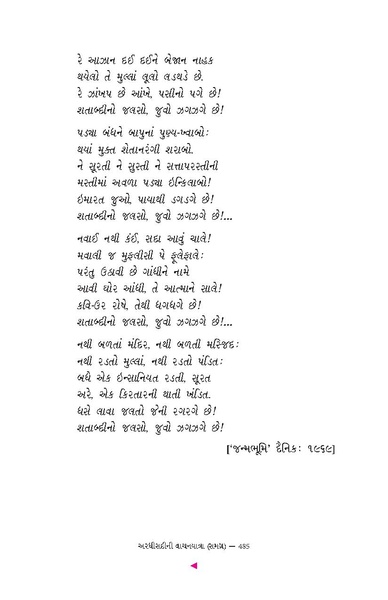 રે આઝાન દઈ દઈને બેજાન નાહક
થયેલો તે મુલ્લાં લૂલો લડથડે છે.
રે ઝાંખપ છે આંખે, પસીનો પગે છે!
શતાબ્દીનો જલસો, જુવો ઝગઝગે છે!
પડ્યા બંધને બાપુનાં પુણ્ય-ખ્વાબો:
થયાં મુક્ત શેતાનરંગી શરાબો,
ને સૂરતી ને સુસ્તી ને સત્તાપરસ્તીની
મસ્તીમાં અવળા પડ્યા ઇન્કિલાબો!
ઇમારત જુઓ, પાયાથી ડગડગે છે!
શતાબ્દીનો જલસો, જુવો ઝગઝગે છે!...
નવાઈ નથી કંઈ, સદા આવું ચાલે!
મવાલી જ મુફલીસી પે ફૂલેફાલે:
પરંતુ ઉઠાવી છે ગાંધીને નામે
આવી ઘોર આંધી, તે આત્માને સાલે!
કવિ-ઉર રોષે, તેથી ધગધગે છે!
શતાબ્દીનો જલસો, જુવો ઝગઝગે છે!...
નથી બળતાં મંદિર, નથી બળતી મસ્જિદ:
નથી રડતો મુલ્લાં, નથી રડતો પંડિત:
બધે એક ઇન્સાનિયત રડતી, સૂરત
અરે, એક કિરતારની થાતી ખંડિત.
ધસે લાવા જલતો જેની રગરગે છે!
શતાબ્દીનો જલસો, જુવો ઝગઝગે છે!
['જન્મભૂમિ' દૈનિક: ૧૯૬૯]
અરધીસદીની વાચનયાત્રા (સમગ્ર) — 485